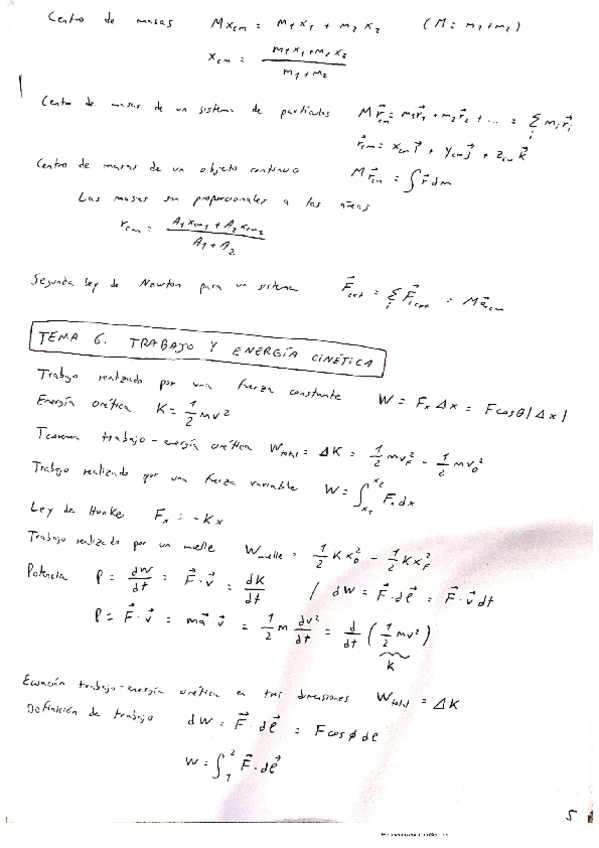 Centro de masas M x_cm = m_1 x_1 + m_2 x_2 (M = m_1 + m_2)
x_cm = (m_1 x_1 + m_2 x_2) / (m_1 + m_2)
Centro de masas de un sistema de partículas M r⃗_cm = m_1 r⃗_1 + m_2 r⃗_2 + ... = Σ_i m_i r⃗_i
r⃗_cm = x_cm i⃗ + y_cm j⃗ + z_cm k⃗
Centro de masas de un objeto continuo M r⃗_cm = ∫ r⃗ dm
Las masas son proporcionales a las áreas
r_cm = (A_1 x_cm1 + A_2 x_cm2) / (A_1 + A_2)
Segunda ley de Newton para un sistema F⃗_ext = Σ_i F⃗_i ext = M a⃗_cm
TEMA 6. TRABAJO Y ENERGÍA CINÉTICA
Trabajo realizado por una fuerza constante W = F_x Δx = F cos θ |Δx|
Energía cinética K = 1/2 mv²
Teorema trabajo-energía cinética W_total = ΔK = 1/2 mv_F² - 1/2 mv_0²
Trabajo realizado por una fuerza variable W = ∫_{x_1}^{x_2} F_x dx
Ley de Hooke F_x = -Kx
Trabajo realizado por un muelle W_muelle = 1/2 K x_0² - 1/2 K x_F²
Potencia P = dW/dt = F⃗ · v⃗ = dK/dt / dW = F⃗ · dℓ⃗ = F⃗ · v⃗ dt
P = F⃗ · v⃗ = ma⃗ v⃗ = 1/2 m dv²/dt = d/dt (1/2 mv²)
K
Ecuación trabajo-energía cinética en tres dimensiones W_total = ΔK
Definición de trabajo dW = F⃗ · dℓ⃗ = F cos ϕ dℓ
W = ∫_1^2 F⃗ · dℓ⃗
5